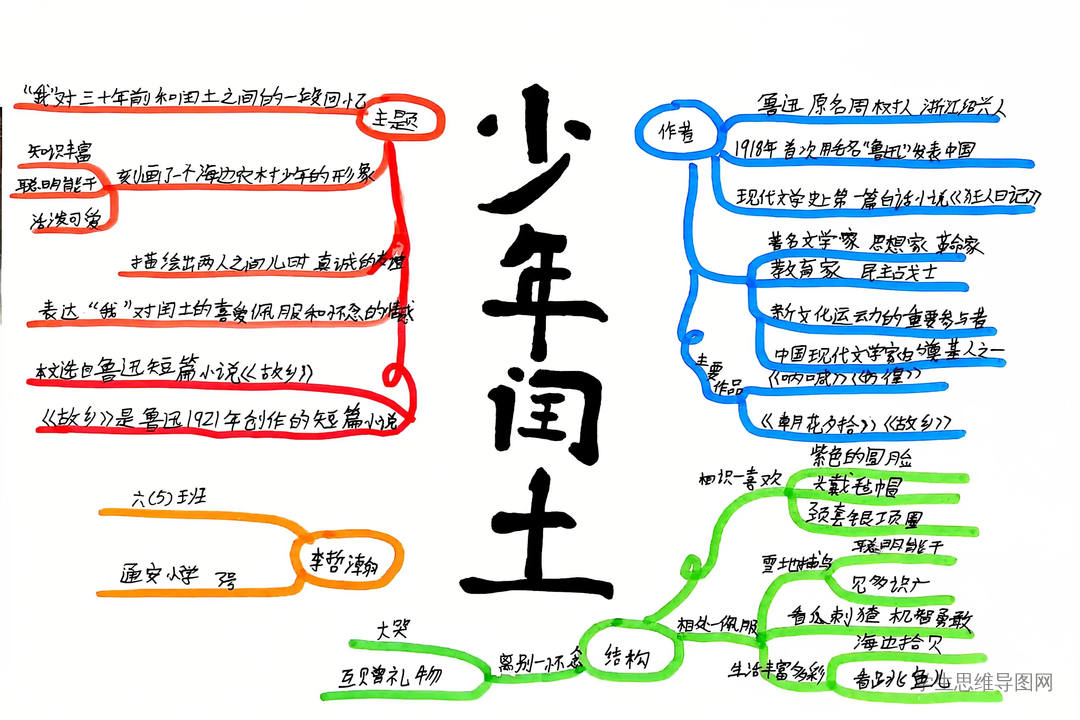 少年闰土
主题
“我”对三十年前和闰土之间的一段回忆
刻画了一个海边农村少年的形象
知识丰富
聪明能干
活泼可爱
描绘出两人之间儿时真诚的友谊
表达“我”对闰土的喜爱佩服和怀念的情感
本文选自鲁迅短篇小说《故乡》
《故乡》是鲁迅1921年创作的短篇小说
作者
鲁迅 原名周树人 浙江绍兴人
1918年首次用笔名“鲁迅”发表中国
现代文学史上第一篇白话小说《狂人日记》
著名文学家 思想家 革命家
教育家 民主战士
新文化运动的重要参与者
中国现代文学家的奠基人之一
主要
作品
《呐喊》《彷徨》
《朝花夕拾》《故乡》
六(5)班
李哲瀚
通安小学 号
结构
相识—喜欢
紫色的圆脸
头戴毡帽
颈套银项圈
相处—佩服
雪地捕鸟
聪明能干
见多识广
看瓜刺猹 机智勇敢
生活丰富多彩
海边拾贝
看跳鱼儿
离别—怀念
大哭
互赠礼物
思维导图网